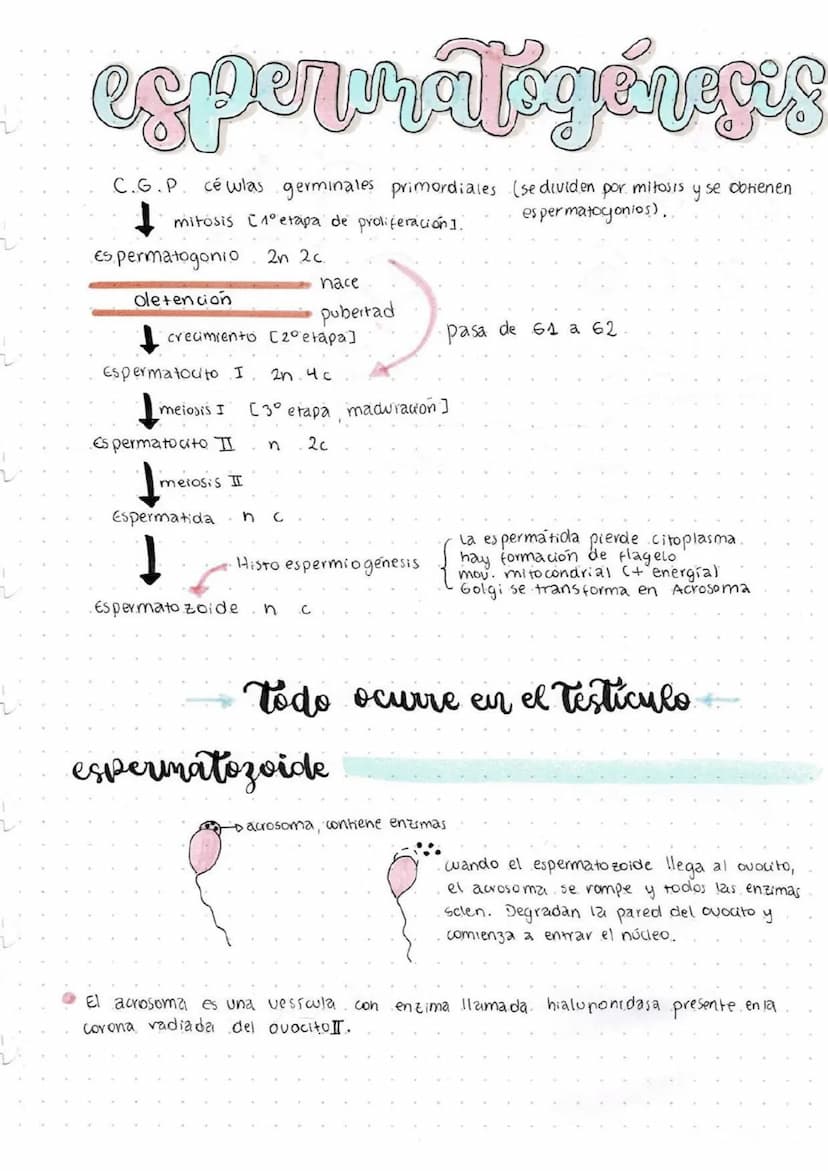 espermatogénesis
C.G.P. células germinales primordiales (se dividen por mitosis y se obtienen
espermatogonios).
mitosis [1º etapa de proliferación].
Espermatogonio 2n 2c
nace
detención
pubertad
crecimiento [2º etapa]
pasa de G1 a G2
Espermatocito I 2n 4c
meiosis I [3º etapa, maduración]
Espermatocito II n 2c
meiosis II
Espermatida n c
Histo espermiogénesis
La espermátida pierde citoplasma
hay formación de flagelo
mov. mitocondrial (+ energía)
Golgi se transforma en Acrosoma
Espermatozoide n c
Todo ocurre en el Testículo
espermatozoide
acrosoma, contiene enzimas
cuando el espermatozoide llega al ovocito,
el acrosoma se rompe y todos las enzimas
salen. Degradan la pared del ovocito y
comienza a entrar el núcleo.
El acrosoma es una vesícula con enzima llamada hialuronidasa presente en la
corona radiada del ovocito II.